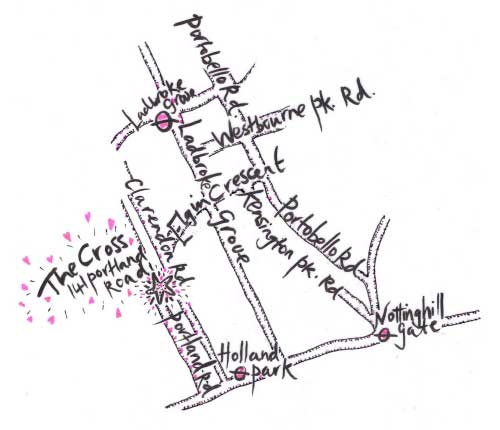 Portobello Rd
Ladbroke
grove
Westbourne pk. Rd.
Ladbroke
Grove
Elgin Crescent
Clarendon Rd
Kensington pk. Rd
Portobello Rd
The Cross
141 portland
Road
portland Rd
Holland
park
Nottinghill
gate